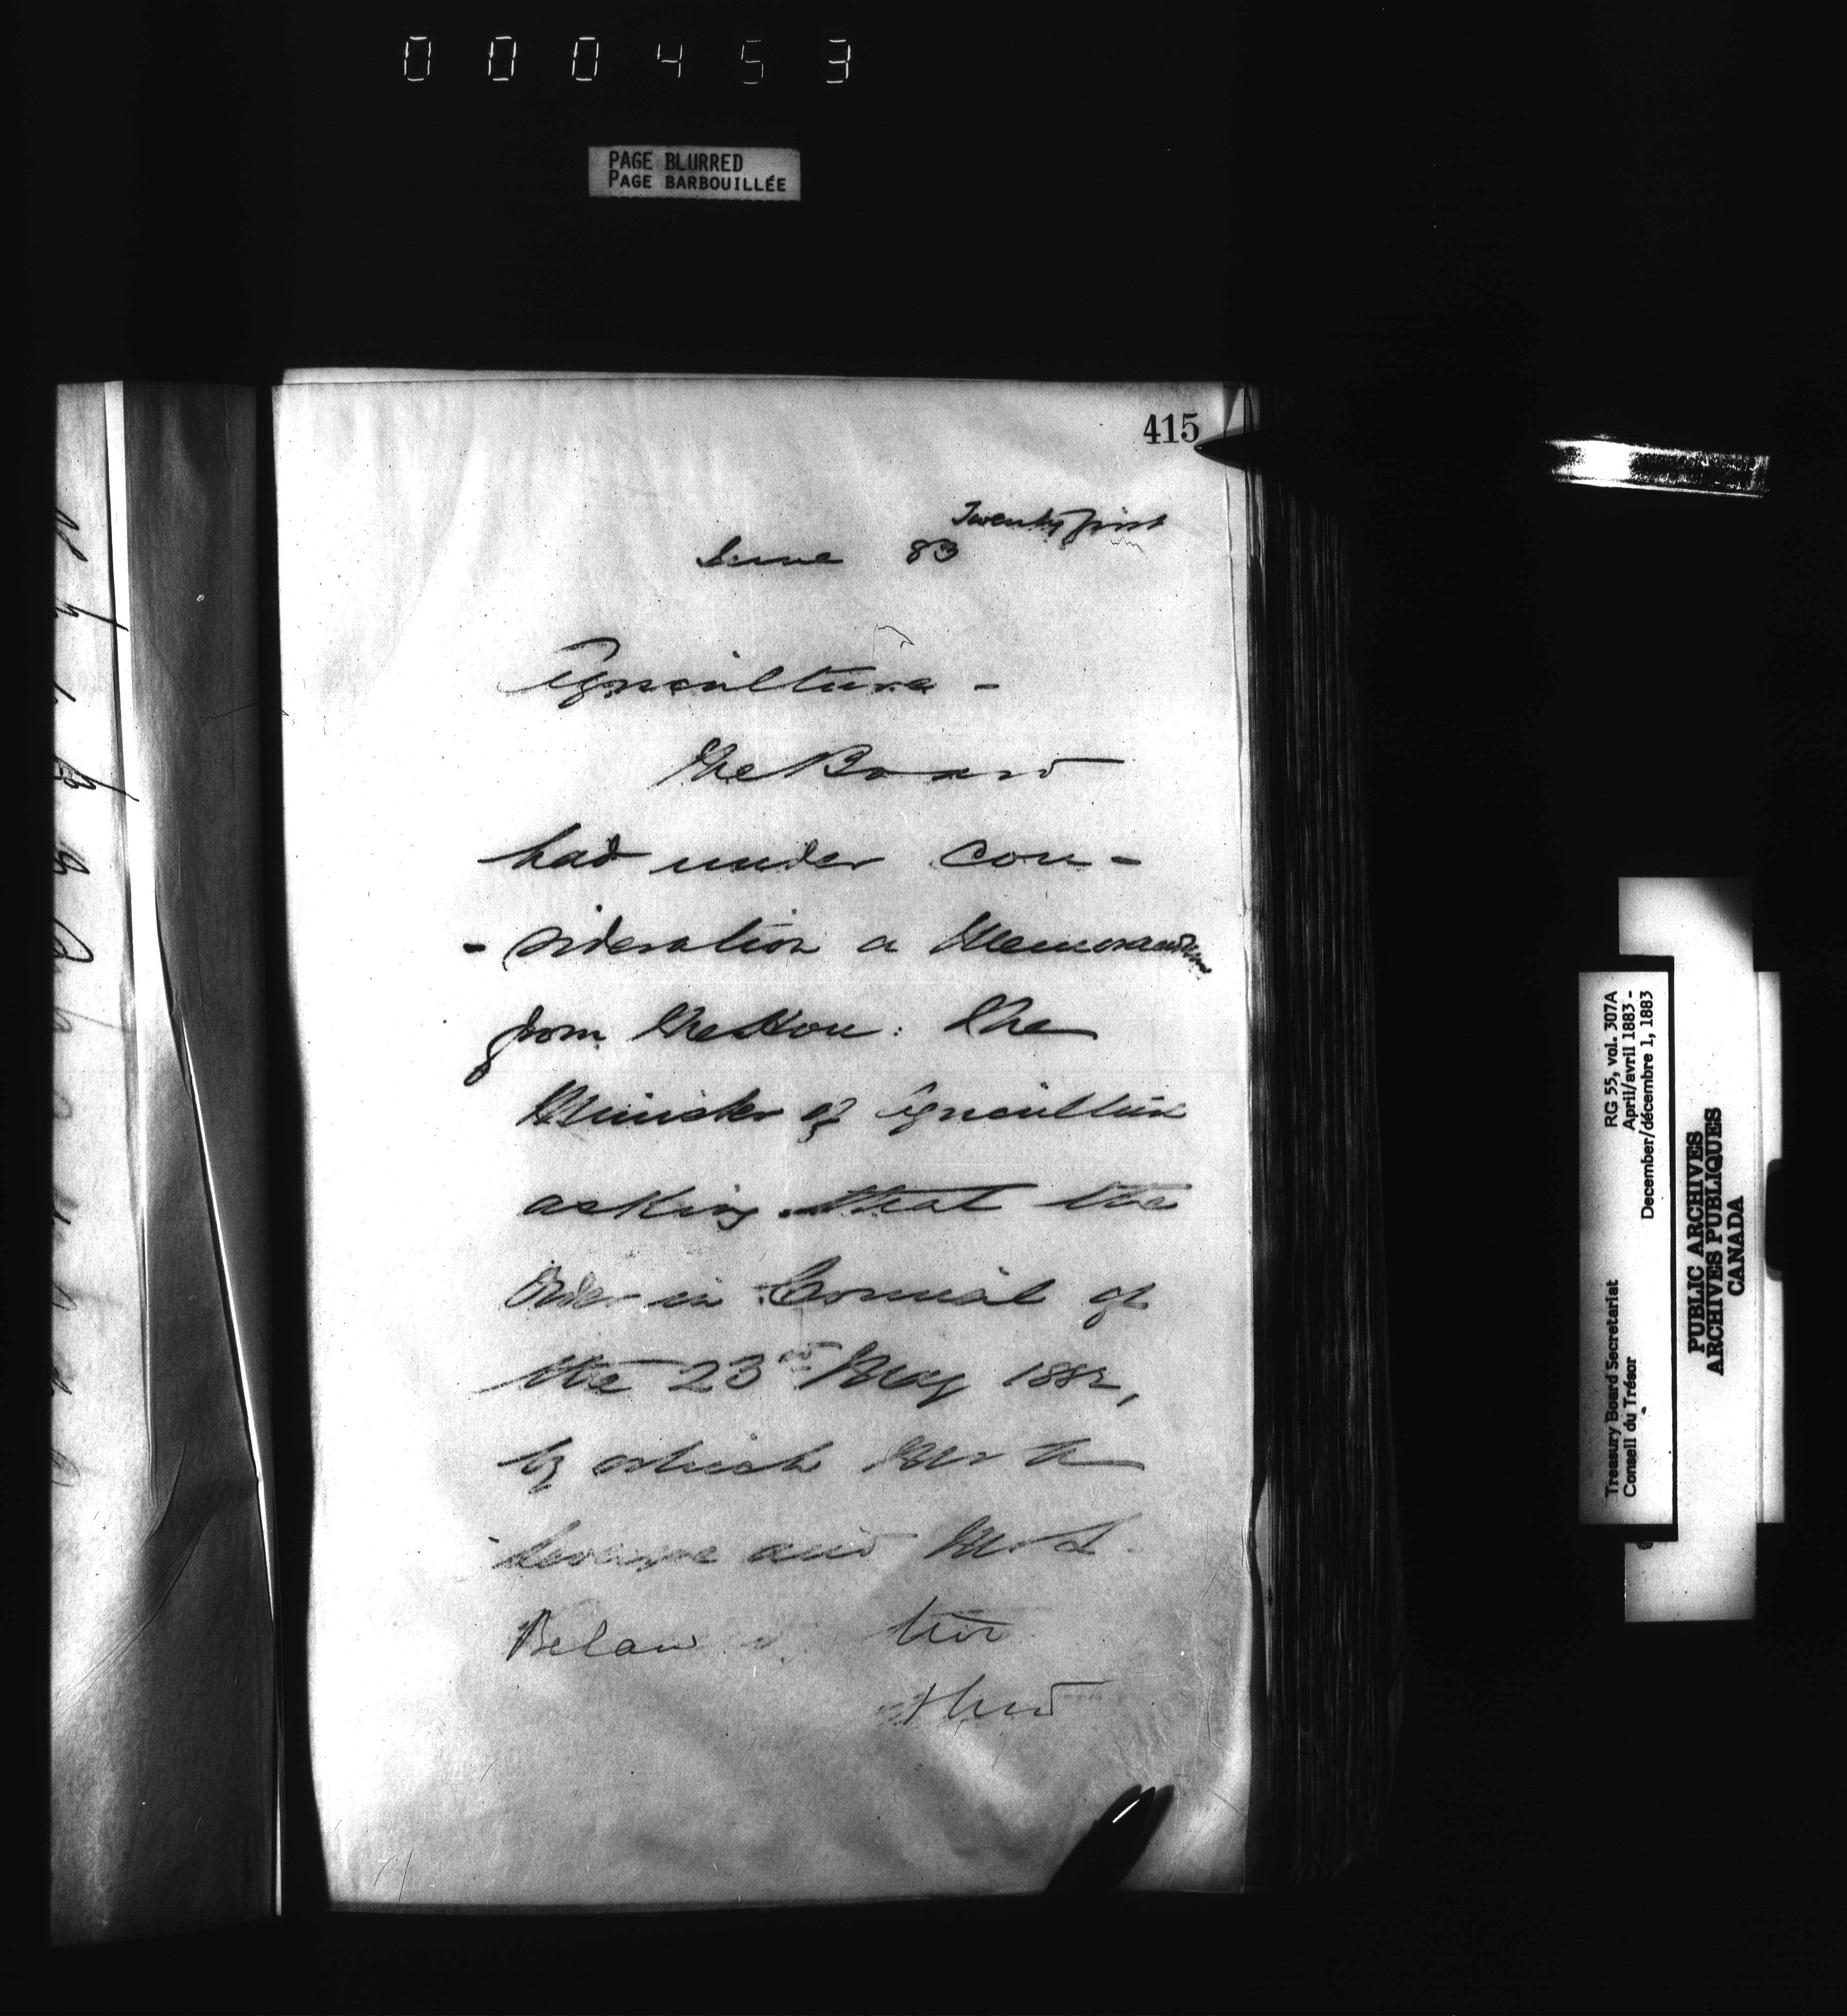 000453
PAGE BLURRED
PAGE BARBOUILLÉE
415
Twenty first
June 83
Agriculture -
The Board
had under con-
- sideration a Memorandum
from the Hon: the
Minister of Agriculture
asking that the
Order in Council of
the 23rd May 1882,
by which
and
third
RG 55, vol. 307A
April/avril 1883 -
December/décembre 1, 1883
Treasury Board Secretariat
Conseil du Trésor
PUBLIC ARCHIVES
ARCHIVES PUBLIQUES
CANADA